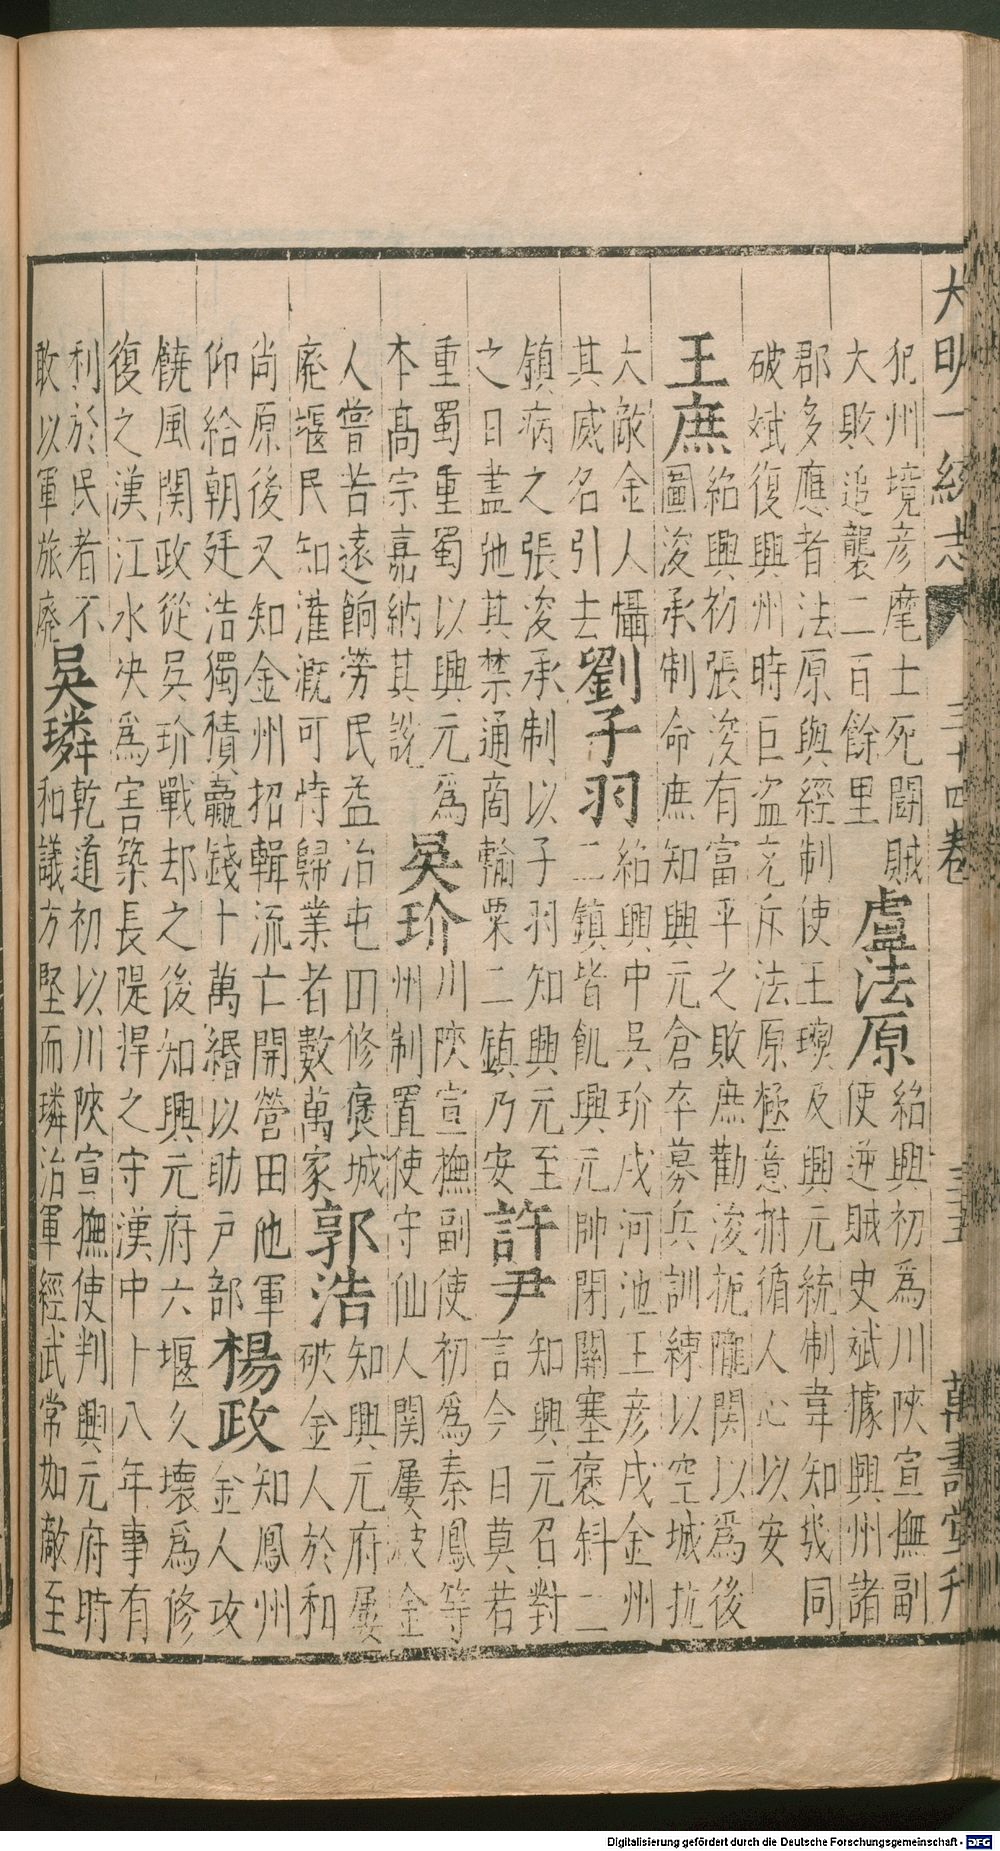 大明一統志 三十四卷 三五 萬壽堂刊
犯州境彦麾士死鬬賊
大敗追襲二百餘里
盧法原
紹興初爲川陝宣撫副
使逆賊史斌據興州諸
郡多應者法原與經制使王𤫉及興元統制韋知幾同
破斌復興州時巨盗充斥法原極意拊循人心以安
王庶
紹興初張浚有富平之敗庶勸浚扼隴関以爲後
圖浚承制命庶知興元倉卒募兵訓練以空城抗
大敵金人懾
其威名引去
劉子羽
紹興中吳玠戍河池王彦戍金州
二鎮皆飢興元帥閉關塞褒斜二
鎮病之張浚承制以子羽知興元至
之日盡弛其禁通商輸粟二鎮乃安
許尹
知興元召對
言今日莫若
重蜀重蜀以興元爲
本高宗嘉納其說
吳玠
川陝宣撫副使初爲秦鳳等
州制置使守仙人関屢破金
人嘗苦遠餉勞民益冶屯田修褒城
廢堰民知灌溉可恃歸業者數萬家
郭浩
知興元府屢
破金人於和
尚原後又知金州招輯流亡開營田他軍
仰給朝廷浩獨積贏錢十萬緡以助戶部
楊政
知鳳州
金人攻
饒風関政從吳玠戰却之後知興元府六堰久壞爲修
復之漢江水决爲害築長隄捍之守漢中卜八年事有
利於民者不
敢以軍旅廢
吳璘
乾道初以川陝宣撫使判興元府時
和議方堅而璘治軍經武常如敵至
Digitalisierung gefördert durch die Deutsche Forschungsgemeinschaft - DFG